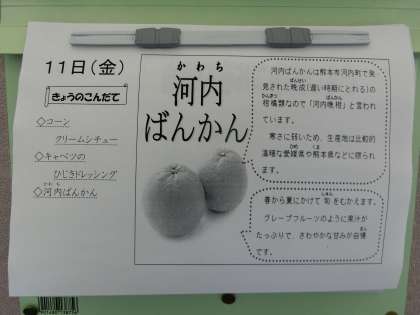 11日(金)
きょうのこんだて
◇コーン
クリームシチュー
◇キャベツの
ひじきドレッシング
◇河内ばんかん
かわち
河内
ばんかん
河内ばんかんは熊本市河内町で発
見された晩成(遅い時期にとれる)の
柑橘類なので「河内晩柑」と言われ
ています。
寒さに弱いため、生産地は比較的
温暖な愛媛県や熊本県などに限られ
ます。
春から夏にかけて旬をむかえます。
グレープフルーツのように果汁が
たっぷりで、さわやかな甘みが自慢
です。